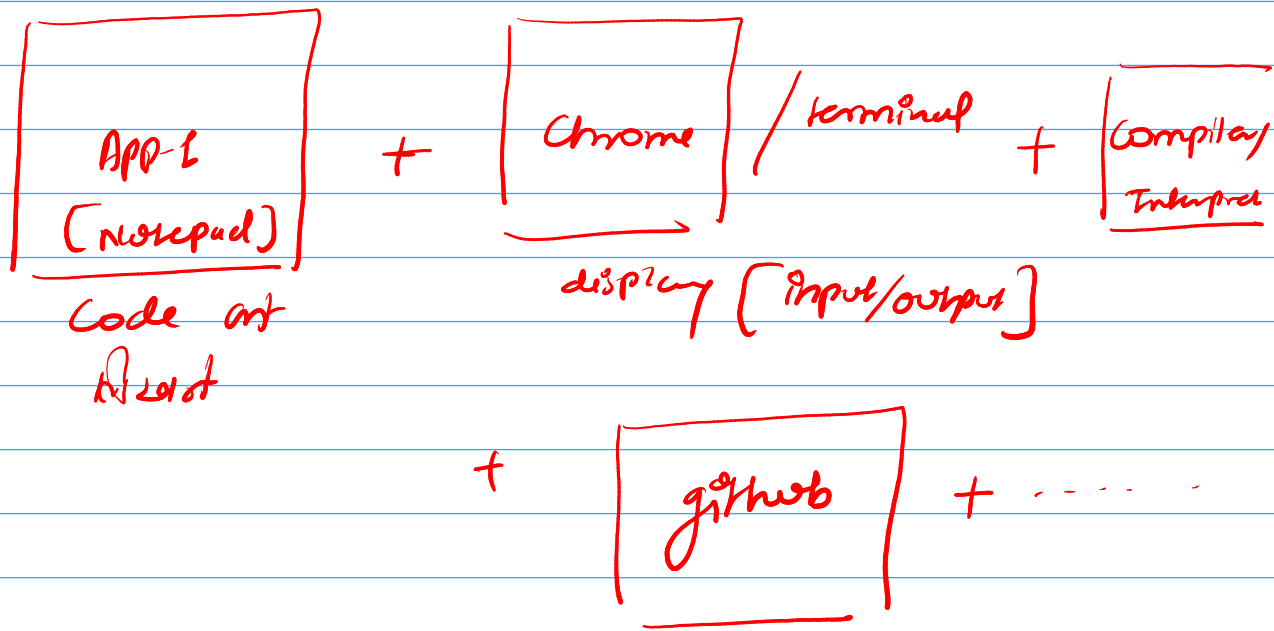 App-1
[Notepad]
Code
+
Chrome
/ terminal
display [input/output]
+
Compiler/
Interpret
+
github
+ ......